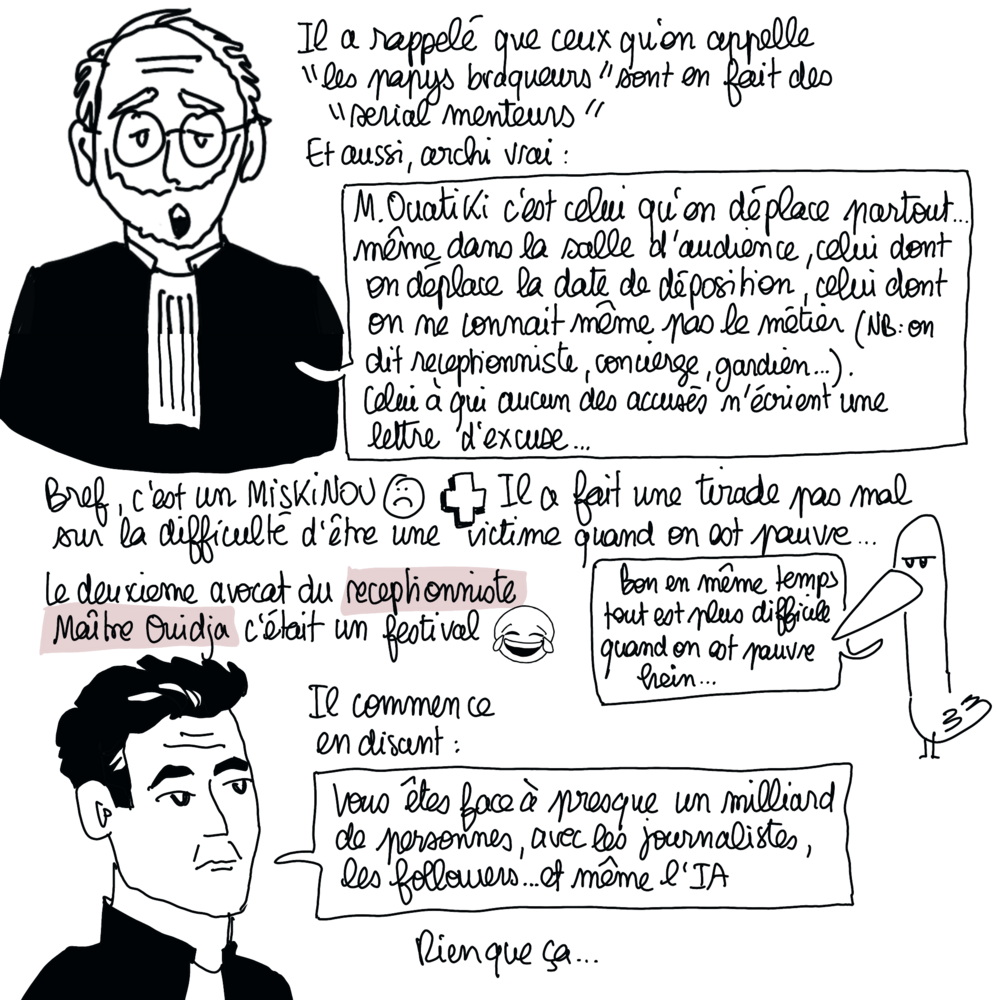 Il a rappelé que ceux qu'on appelle
"les papys braqueurs" sont en fait des
"serial menteurs"
Et aussi, archi vrai :
M. Ouatiki c'est celui qu'on déplace partout...
même dans la salle d'audience, celui dont
on déplace la date de déposition, celui dont
on ne connait même pas le métier (NB: on
dit receptionniste, concierge, gardien...).
Celui à qui aucun des accusés n'écrient une
lettre d'excuse...
Bref, c'est un MiSKiNOU
Il a fait une tirade pas mal
sur la difficulté d'être une victime quand on est pauvre...
Bon en même temps
tout est plus difficile
quand on est pauvre
hein...
Le deuxieme avocat du receptionniste
Maître Ouidja c'était un festival
Il commence
en disant :
Vous êtes face à presque un milliard
de personnes, avec les journalistes,
les followers...et même l'IA
Rien que ça...